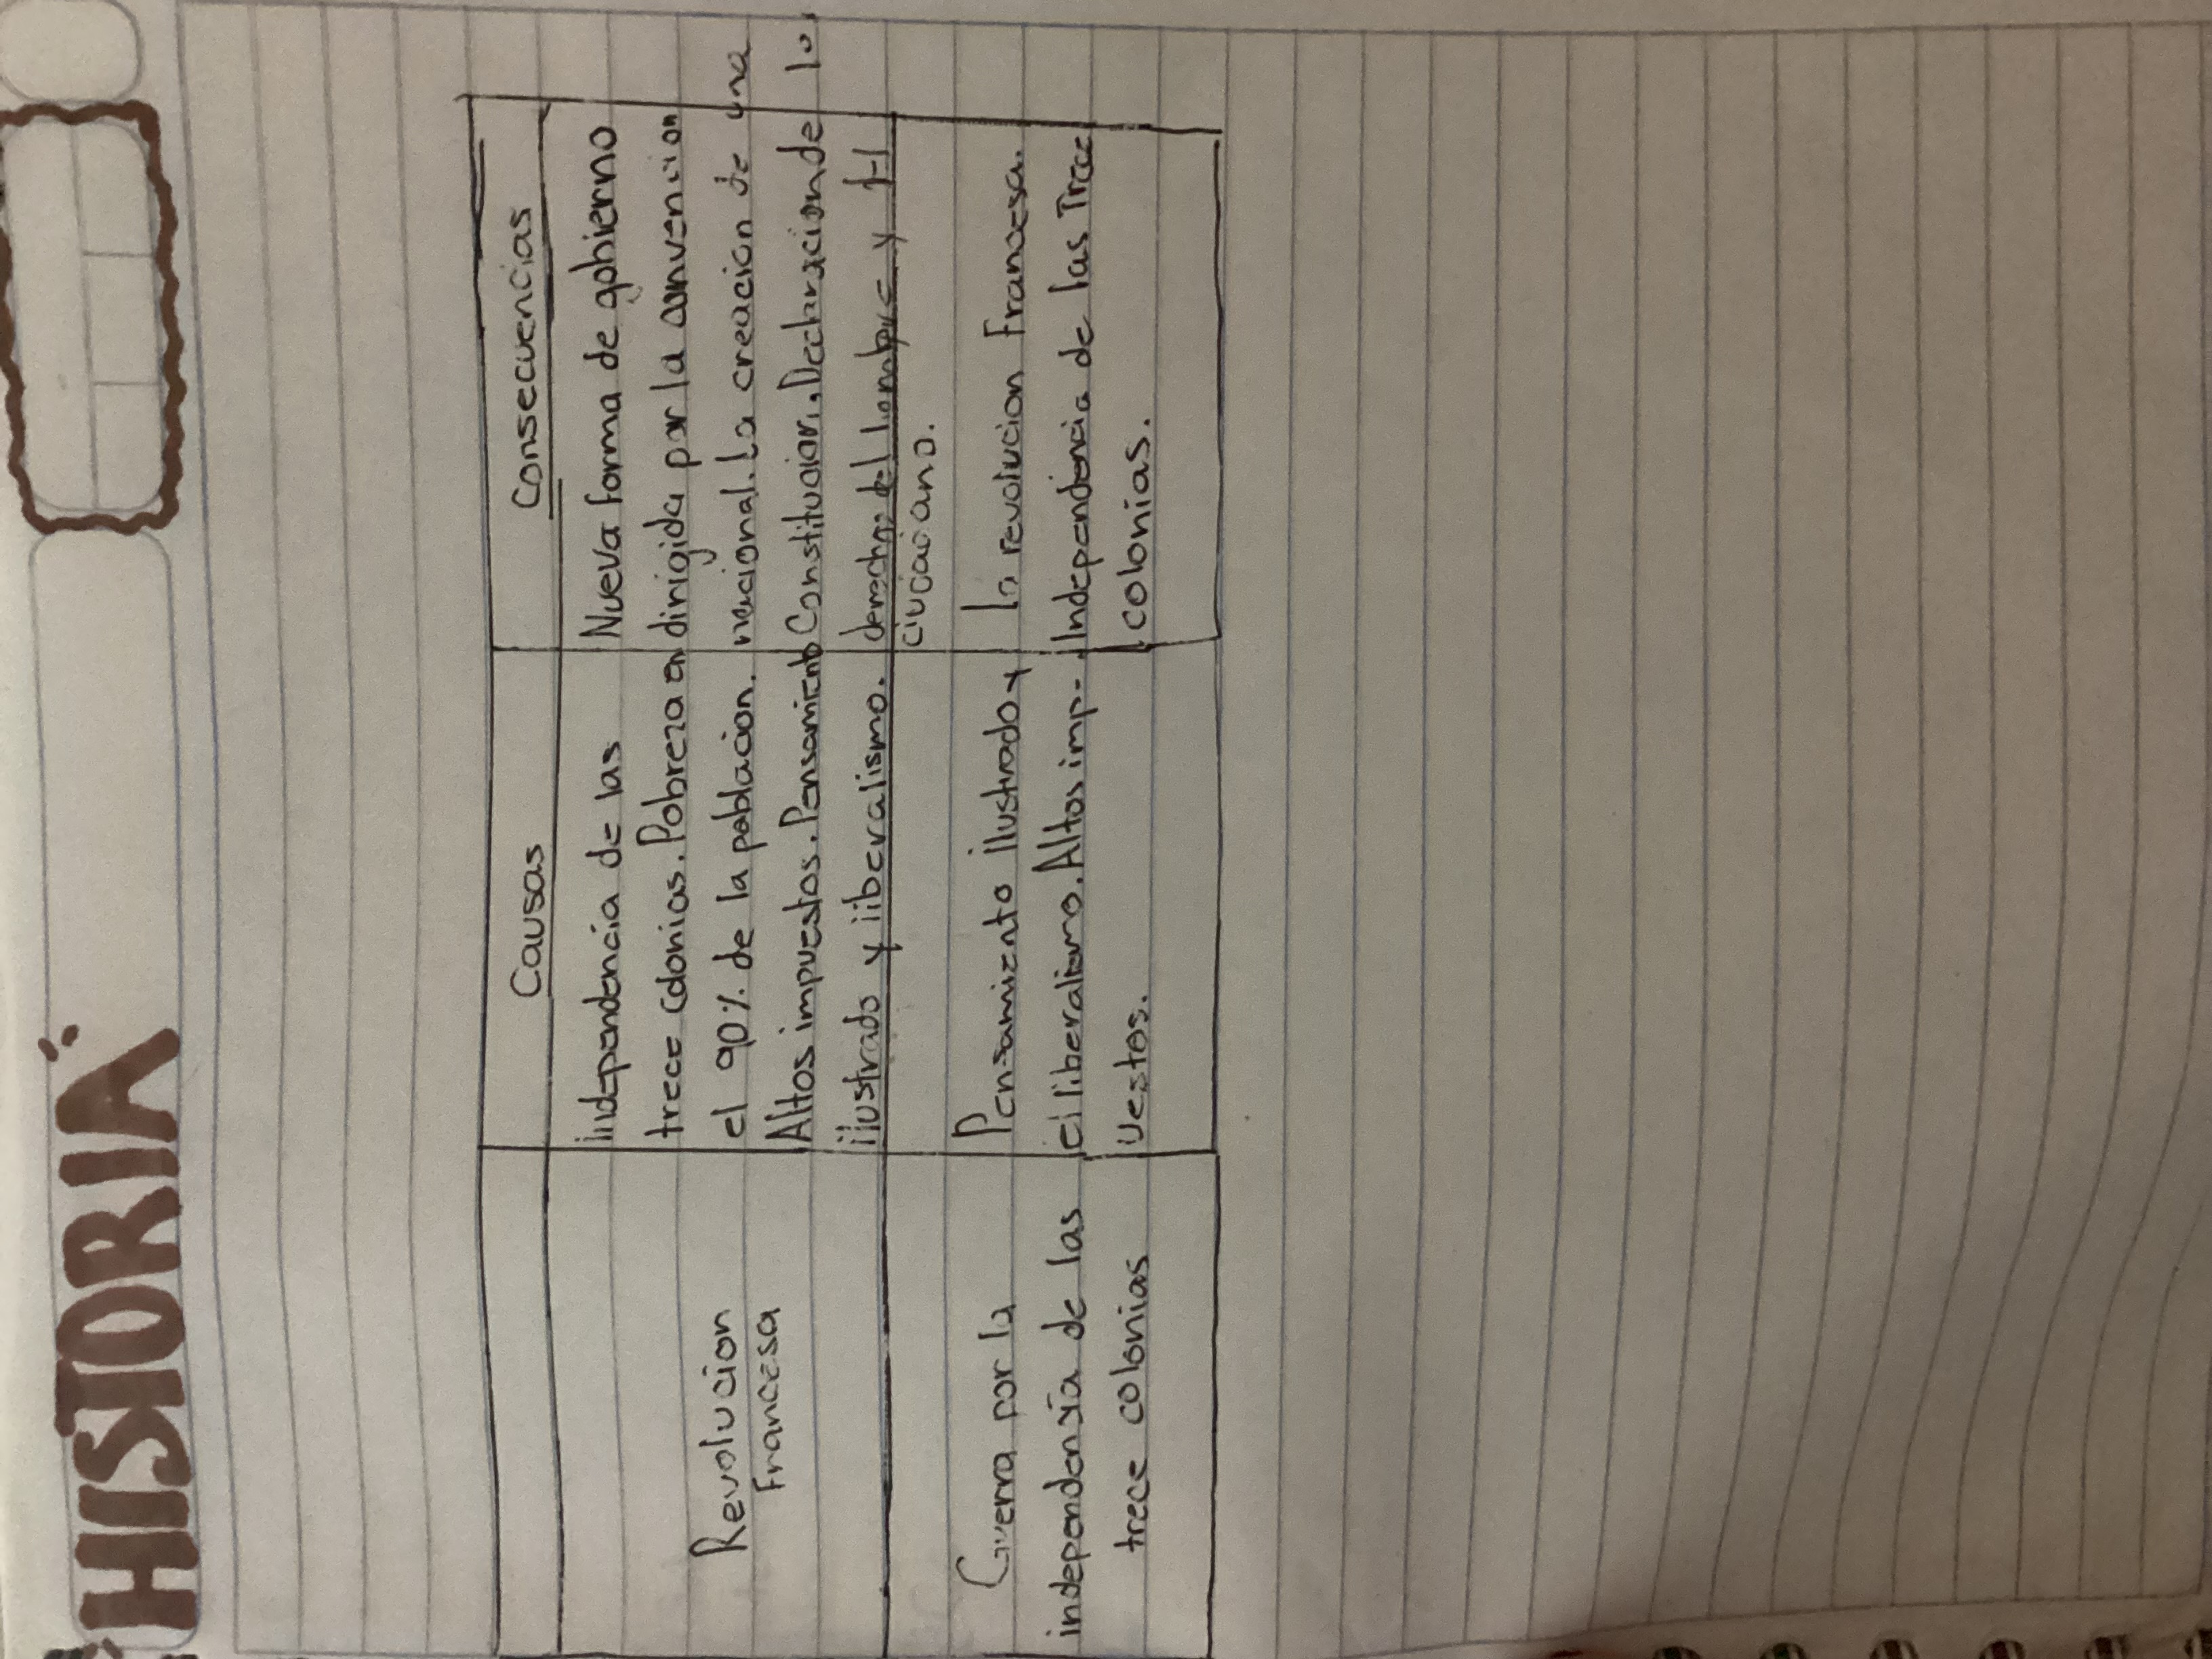 HISTORIA
Causas
Consecuencias
Revolucion
Francesa
independencia de las
trece Colonias. Pobreza en
el 90% de la poblacion.
Altos impuestos. Pensamiento
ilustrado y liberalismo.
Nueva forma de gobierno
dirigida por la convencion
nacional. La creacion de una
Constitucion. Declaracion de lo
derechos del hombre y El
ciudadano.
Guerra por la
independencia de las
trece colonias
Pensamiento ilustrado y
el liberalismo. Altos imp-
uestos.
la revolucion Francesa.
Independencia de las Trece
colonias.